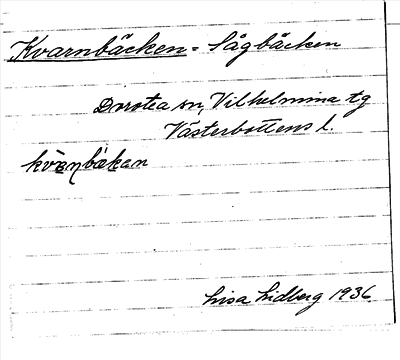 Kvarnbäcken = Sågbäcken
Dorotea sn, Vilhelmina tg
Västerbottens l.
Lisa Lidberg 1936